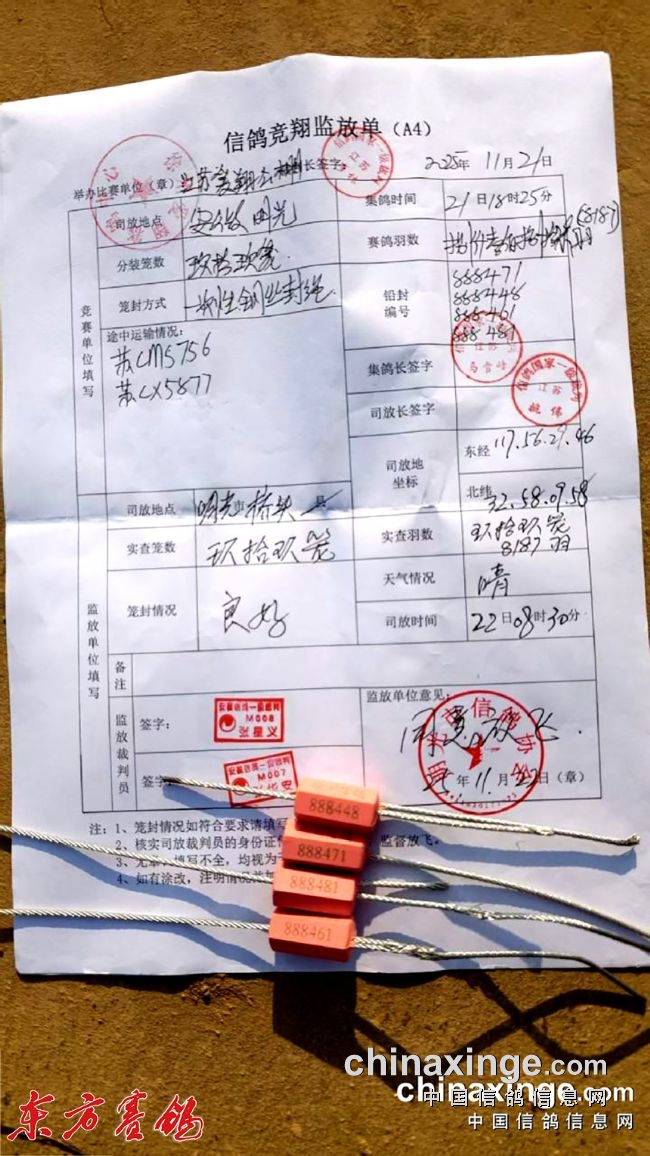 信鸽竞翔监放单（A4）
2025年 11月21日
举办比赛单位（章） 长签字：
竞赛单位填写
司放地点 安徽 明光 集鸽时间 21日18时25分
分装笼数 玖拾玖笼 赛鸽羽数 (8187)
笼封方式 一次性钢丝封绳 铅封编号 888471
888448
888461
888481
途中运输情况：
苏CM5756
苏CX5877
集鸽长签字
司放长签字
司放地坐标 东经 117.56.29.46
北纬 32.58.09.58
监放单位填写
司放地点 明光市桥头 县
实查笼数 玖拾玖笼 实查羽数 玖拾玖笼
8187羽
笼封情况 良好 天气情况 晴
司放时间 22日08时30分
备注
监放裁判员 签字： M008
张星义
签字： M007
监放单位意见：
同意放飞.
25年11月22日（章）
注：1、笼封情况如符合要求请填写
2、核实司放裁判员的身份证 监督放飞。
3、无章、填写不全，均视为
4、如有涂改，注明情况并
888448
888471
888481
888461
东方赛鸽
chinaxinge.com
chinaxinge.com
中国信鸽信息网
中国信鸽信息网